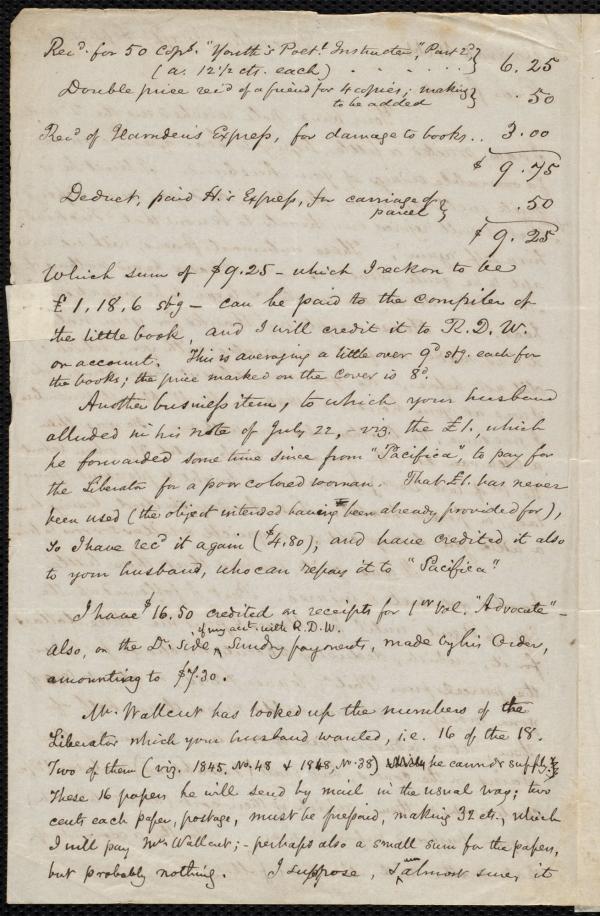 Rec.d for 50 cop.s "Youth's Poet.l Instructer," Part 2.d,
(a. 12 1/2 cts. each) . . . . . . } 6.25
Double price rec.d of a friend for 4 copies; making
to be added } .50
Rec.d of Harnden's Express, for damage to books . . 3.00
$ 9.75
Deduct, paid H.'s Express, for carriage of
parcel } .50
$ 9.25
Which sum of $9.25 – which I reckon to be
£1, 18, 6 st'g – can be paid to the compiler of
the little book, and I will credit it to R. D. W.
on account. This is averaging a little over 9.d stg. each for
the books; the price marked on the cover is 8.d
Another business item, to which your husband
alluded in his note of July 22, – viz. the £1, which
he forwarded some time since from "Pacifica", to pay for
the Liberator for a poor colored woman. That £1. has never
been used (the object intended having been already provided for),
so I have rec.d it again ($4.80), and have credited it also
to your husband, who can repay it to "Pacifica."
I have $16.50 credited on receipts for 1.st vol. "Advocate" –
also, on the D.r side ^ of my acct. with R. D. W. Sundry payments, made by his order,
amounting to $7.30.
Mr. Wallcut has looked up the numbers of the
Liberator which your husband wanted, i.e. 16 of the 18.
Two of them (viz. 1845, No. 48 & 1848, No. 38) he cannot supply.
These 16 papers he will send by mail in the usual way; two
cents each paper, postage, must be prepaid, making 32 cts., which
I will pay Mr. Wallcut; – perhaps also a small sum for the papers,
but probably nothing. I suppose, I ^ am almost sure, it